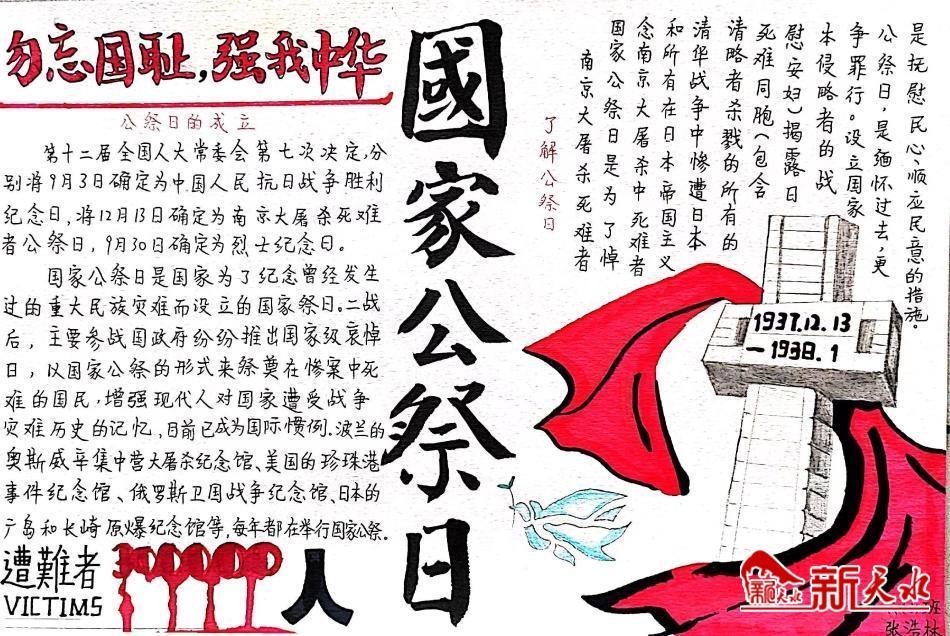 勿忘国耻，强我中华
公祭日的成立
第十二届全国人大常委会第七次决定，分
别将9月3日确定为中国人民抗日战争胜利
纪念日，将12月13日确定为南京大屠杀死难
者公祭日，9月30日确定为烈士纪念日。
国家公祭日是国家为了纪念曾经发生
过的重大民族灾难而设立的国家祭日。二战
后，主要参战国政府纷纷推出国家级哀悼
日，以国家公祭的形式来祭奠在惨案中死
难的国民，增强现代人对国家遭受战争
灾难历史的记忆，目前已成为国际惯例。波兰的
奥斯威辛集中营大屠杀纪念馆、美国的珍珠港
事件纪念馆、俄罗斯卫国战争纪念馆、日本的
广岛和长崎原爆纪念馆等，每年都在举行国家公祭。
遭難者
VICTIMS
300000人
國家公祭日
了解公祭日
南京大屠杀死难者
国家公祭日是为了悼
念南京大屠杀中死难者
和所有在日本帝国主义
清华战争中惨遭日本
请略者杀戮的所有的
死难同胞（包含
慰安妇）揭露日
本侵略者的战
争罪行。设立国家
公祭日，是缅怀过去，更
是抚慰民心、顺应民意的措施。
1937.12.13
—1938.1
新天水
张浩林